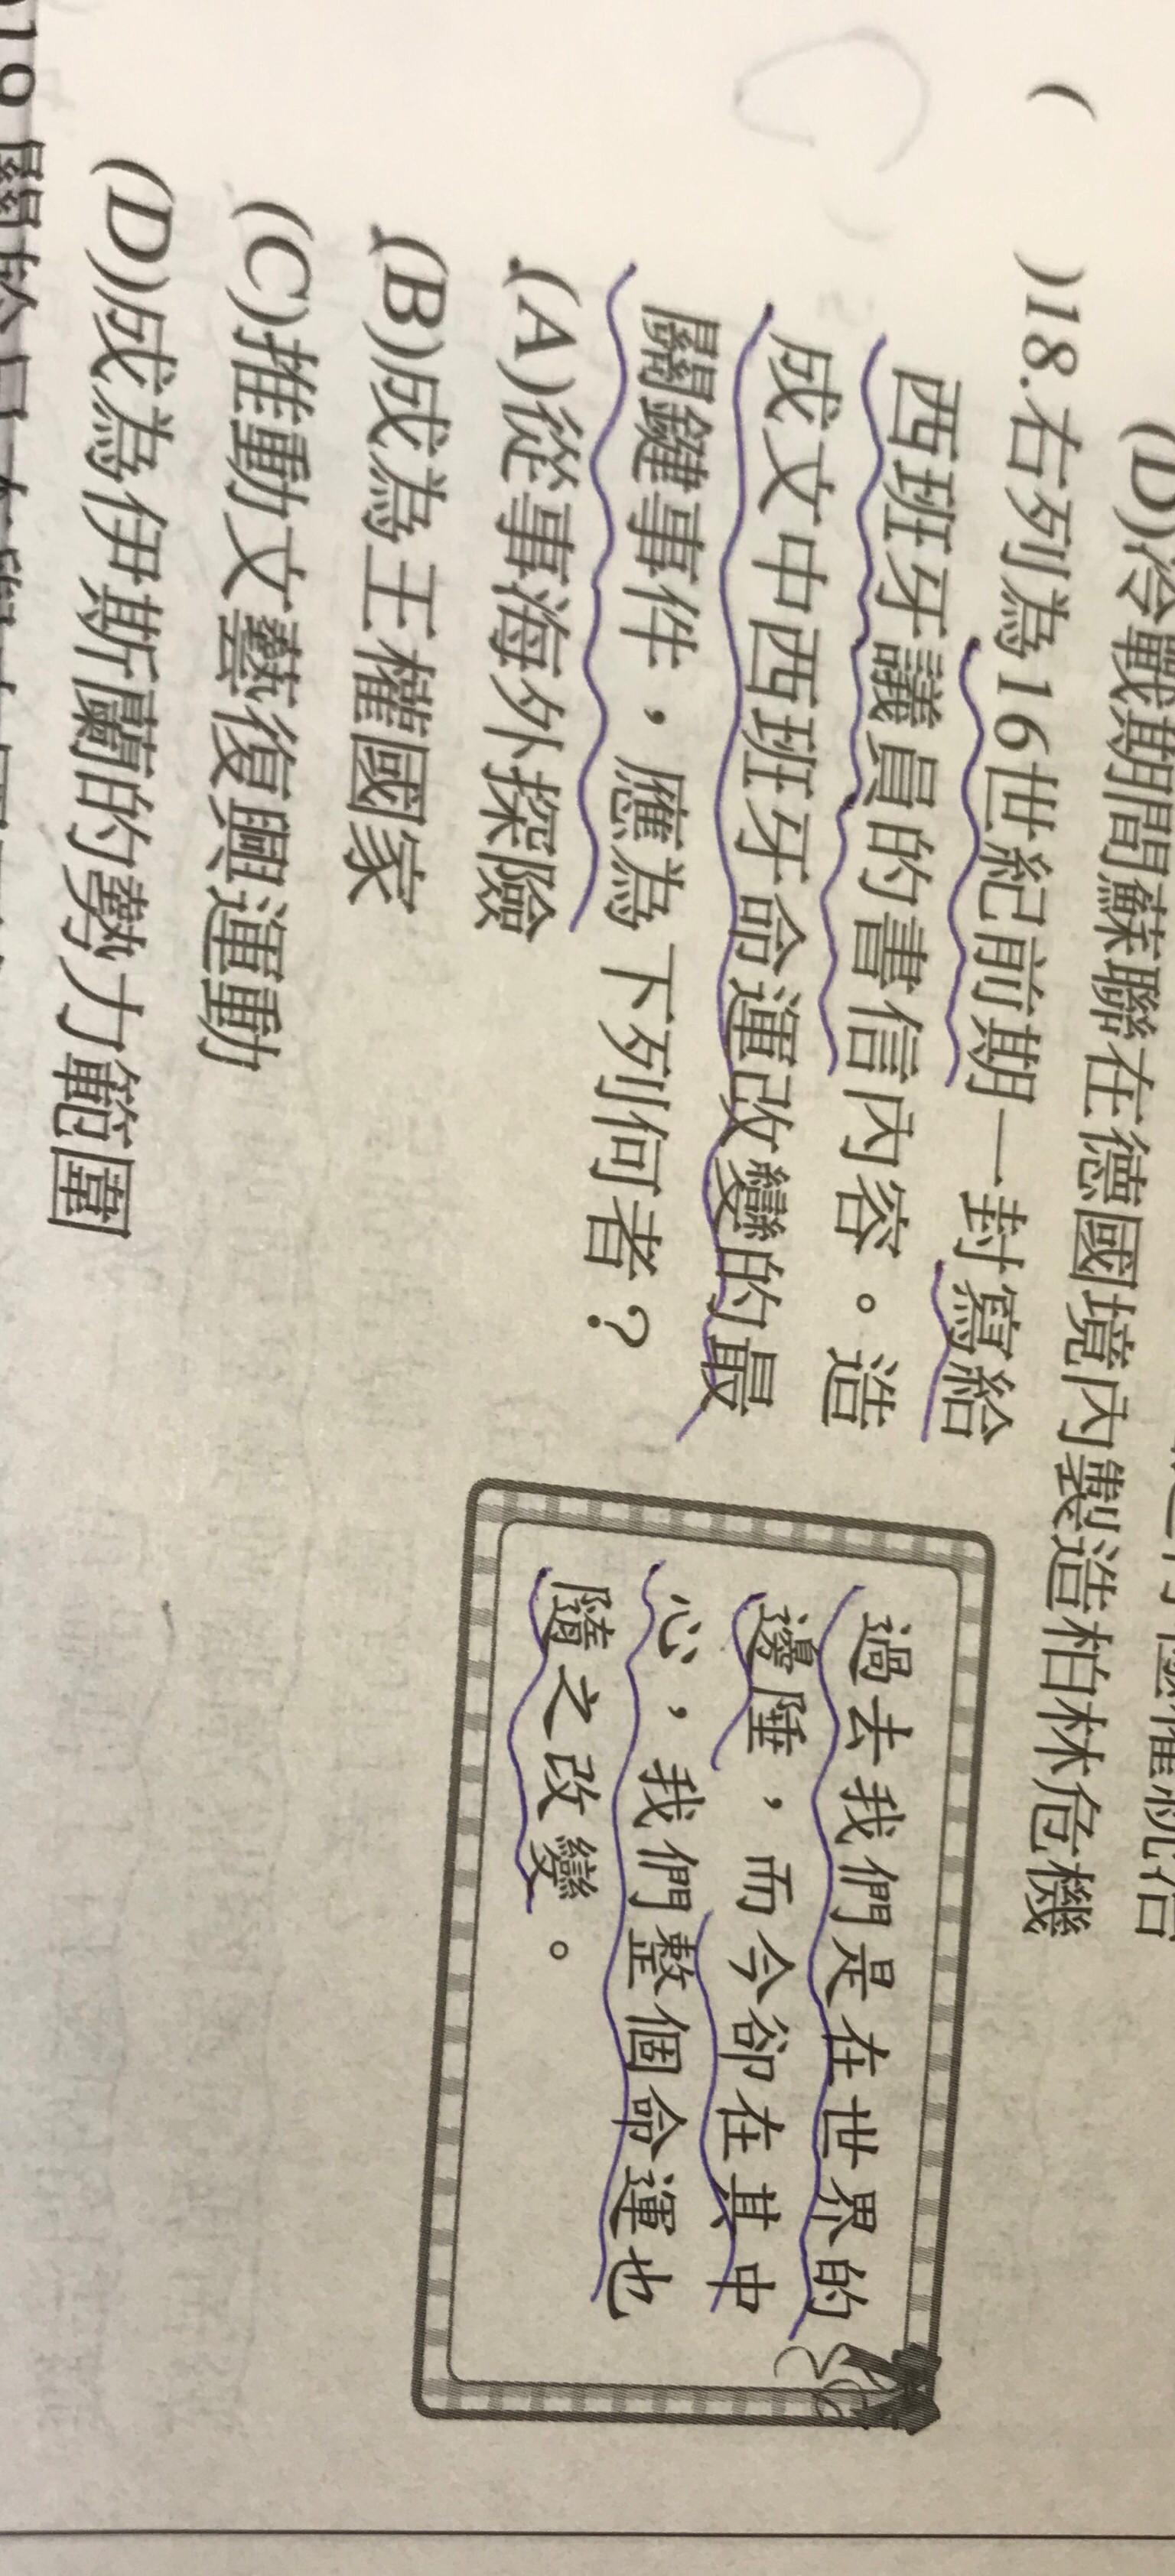 (D)冷戰期間蘇聯在德國境內製造柏林危機
( )18.右列為16世紀前期一封寫給
西班牙議員的書信內容。造
成文中西班牙命運改變的最
關鍵事件，應為下列何者？
(A)從事海外探險
(B)成為王權國家
(C)推動文藝復興運動
(D)成為伊斯蘭的勢力範圍
過去我們是在世界的
邊陲，而今卻在其中
心，我們整個命運也
隨之改變。